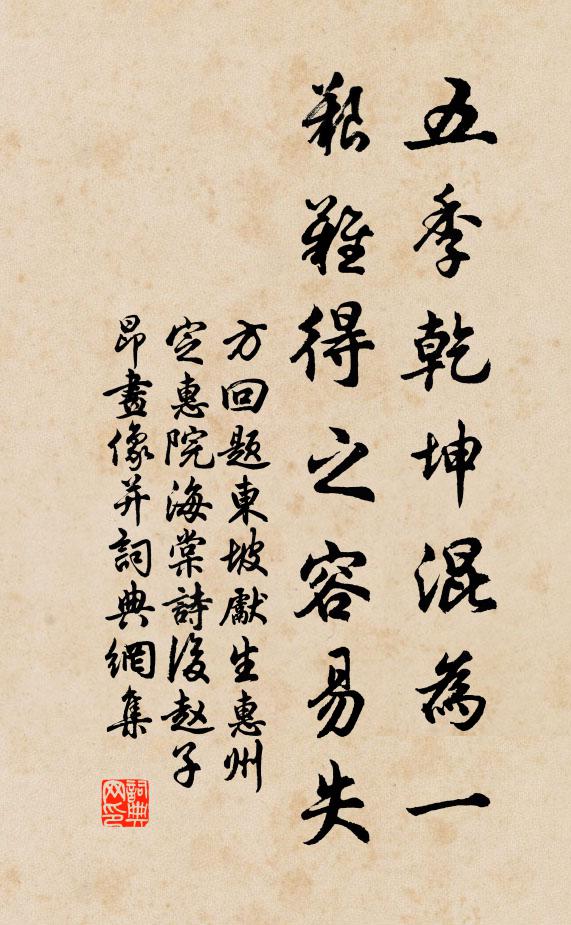 五季乾坤混為一
艱難得之容易失
方回題東坡獻生惠州
定惠院海棠詩後赵子
昂畫像并詞典網集
詞典网印